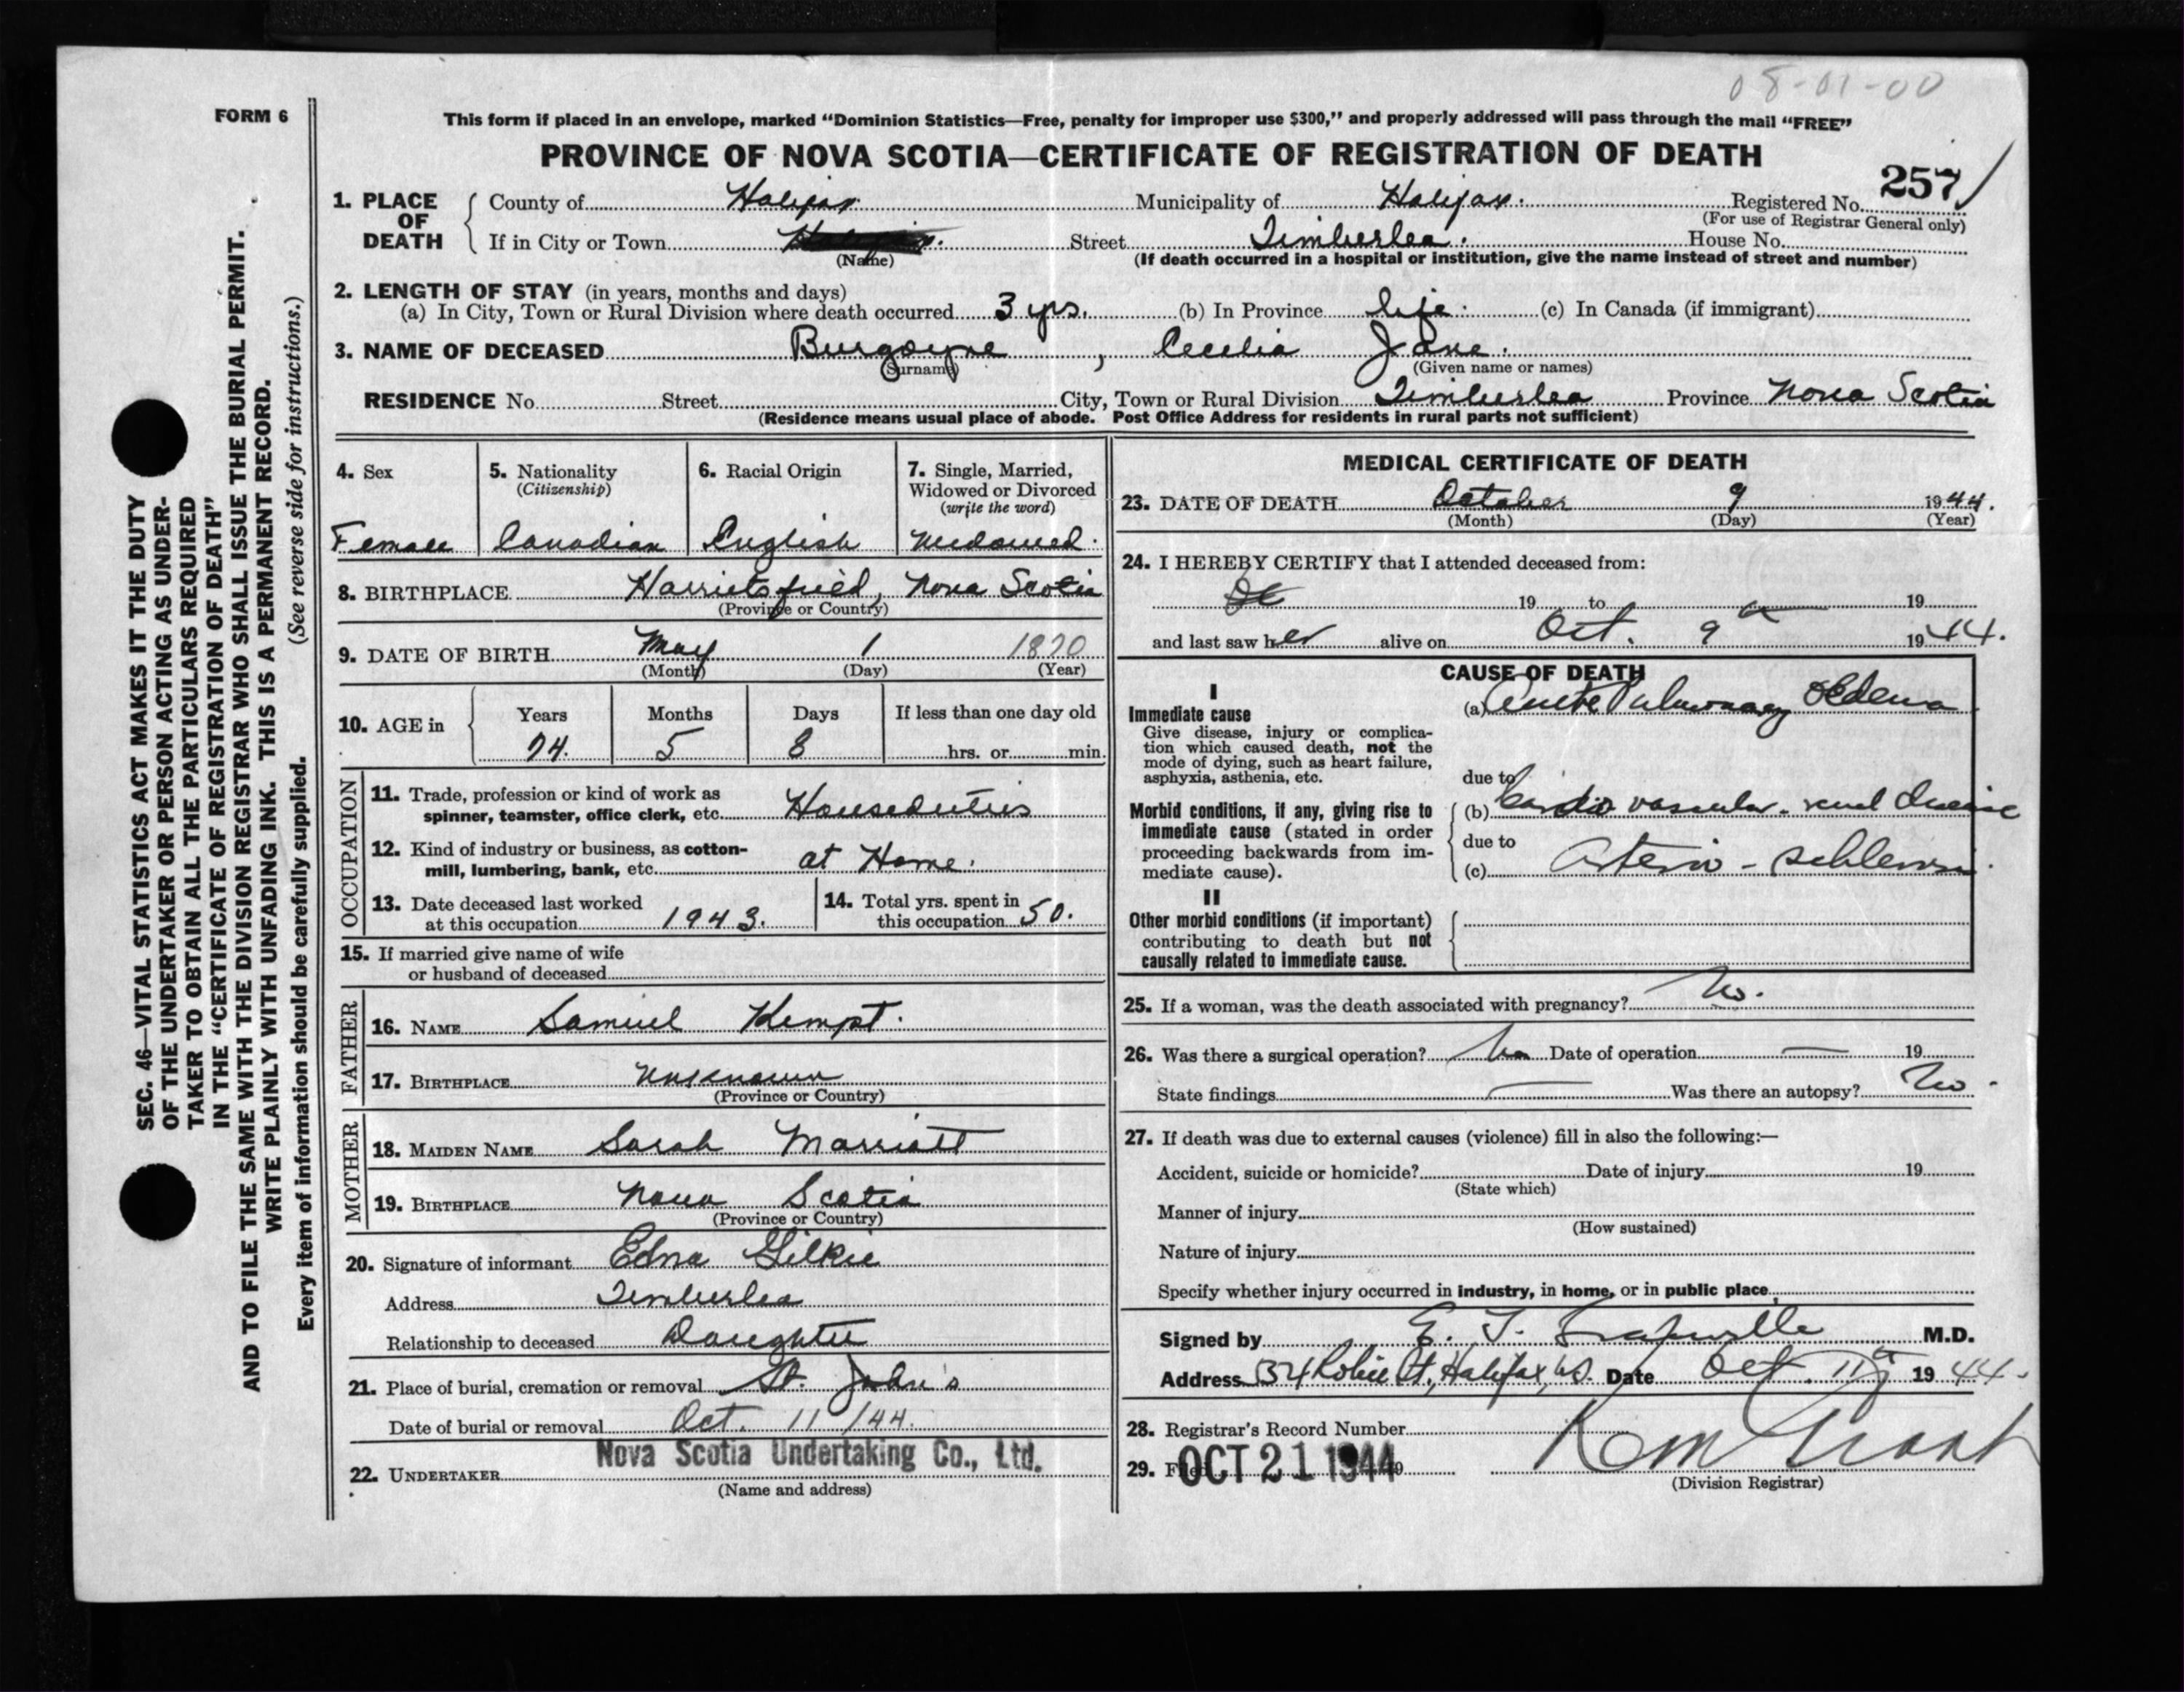 08-01-00
FORM 6
This form if placed in an envelope, marked “Dominion Statistics—Free, penalty for improper use $300,” and properly addressed will pass through the mail “FREE”
PROVINCE OF NOVA SCOTIA—CERTIFICATE OF REGISTRATION OF DEATH
257
1. PLACE OF DEATH County of Halifax Municipality of Halifax. Registered No.
(For use of Registrar General only)
If in City or Town Street Timberlea. House No.
(Name) (If death occurred in a hospital or institution, give the name instead of street and number)
2. LENGTH OF STAY (in years, months and days)
(a) In City, Town or Rural Division where death occurred 3 yrs. (b) In Province life. (c) In Canada (if immigrant)
3. NAME OF DECEASED Burgoyne, Cecelia Jane.
(Surname) (Given name or names)
RESIDENCE No. Street City, Town or Rural Division Timberlea Province Nova Scotia
(Residence means usual place of abode. Post Office Address for residents in rural parts not sufficient)
4. Sex
Female
5. Nationality
(Citizenship)
Canadian
6. Racial Origin
English
7. Single, Married,
Widowed or Divorced
(write the word)
Widowed.
8. BIRTHPLACE Harrietsfield, Nova Scotia
(Province or Country)
9. DATE OF BIRTH May 1 1870
(Month) (Day) (Year)
10. AGE in Years Months Days If less than one day old
74. 5 8 hrs. or min.
OCCUPATION
11. Trade, profession or kind of work as
spinner, teamster, office clerk, etc. Houseduties
12. Kind of industry or business, as cotton-
mill, lumbering, bank, etc. at Home.
13. Date deceased last worked
at this occupation 1943.
14. Total yrs. spent in
this occupation 50.
15. If married give name of wife
or husband of deceased
FATHER
16. NAME Samuel Kempt.
17. BIRTHPLACE Unknown
(Province or Country)
MOTHER
18. MAIDEN NAME Sarah Marriatt
19. BIRTHPLACE Nova Scotia
(Province or Country)
20. Signature of informant Edna Gilkie
Address Timberlea
Relationship to deceased Daughter
21. Place of burial, cremation or removal St. John's
Date of burial or removal Oct. 11/44.
22. UNDERTAKER Nova Scotia Undertaking Co., Ltd.
(Name and address)
MEDICAL CERTIFICATE OF DEATH
23. DATE OF DEATH October 9 1944.
(Month) (Day) (Year)
24. I HEREBY CERTIFY that I attended deceased from:
19 to 19
and last saw her alive on Oct. 9th 1944.
CAUSE OF DEATH
I
Immediate cause
Give disease, injury or complica-
tion which caused death, not the
mode of dying, such as heart failure,
asphyxia, asthenia, etc.
(a) Acute Pulmonary Oedema
due to
Morbid conditions, if any, giving rise to
immediate cause (stated in order
proceeding backwards from im-
mediate cause).
(b) Cardio vascular-renal disease
due to
(c) Arterio-
II
Other morbid conditions (if important)
contributing to death but not
causally related to immediate cause.
25. If a woman, was the death associated with pregnancy? No.
26. Was there a surgical operation? No Date of operation — 19
State findings — Was there an autopsy? No.
27. If death was due to external causes (violence) fill in also the following:—
Accident, suicide or homicide? Date of injury 19
(State which)
Manner of injury
(How sustained)
Nature of injury
Specify whether injury occurred in industry, in home, or in public place
Signed by E. T. M.D.
Address Robie St., Halifax, NS. Date Oct. 11th 1944.
28. Registrar's Record Number
29. Filed OCT 21 1944
(Division Registrar)
SEC. 46—VITAL STATISTICS ACT MAKES IT THE DUTY
OF THE UNDERTAKER OR PERSON ACTING AS UNDER-
TAKER TO OBTAIN ALL THE PARTICULARS REQUIRED
IN THE “CERTIFICATE OF REGISTRATION OF DEATH”
AND TO FILE THE SAME WITH THE DIVISION REGISTRAR WHO SHALL ISSUE THE BURIAL PERMIT.
WRITE PLAINLY WITH UNFADING INK. THIS IS A PERMANENT RECORD.
Every item of information should be carefully supplied. (See reverse side for instructions.)